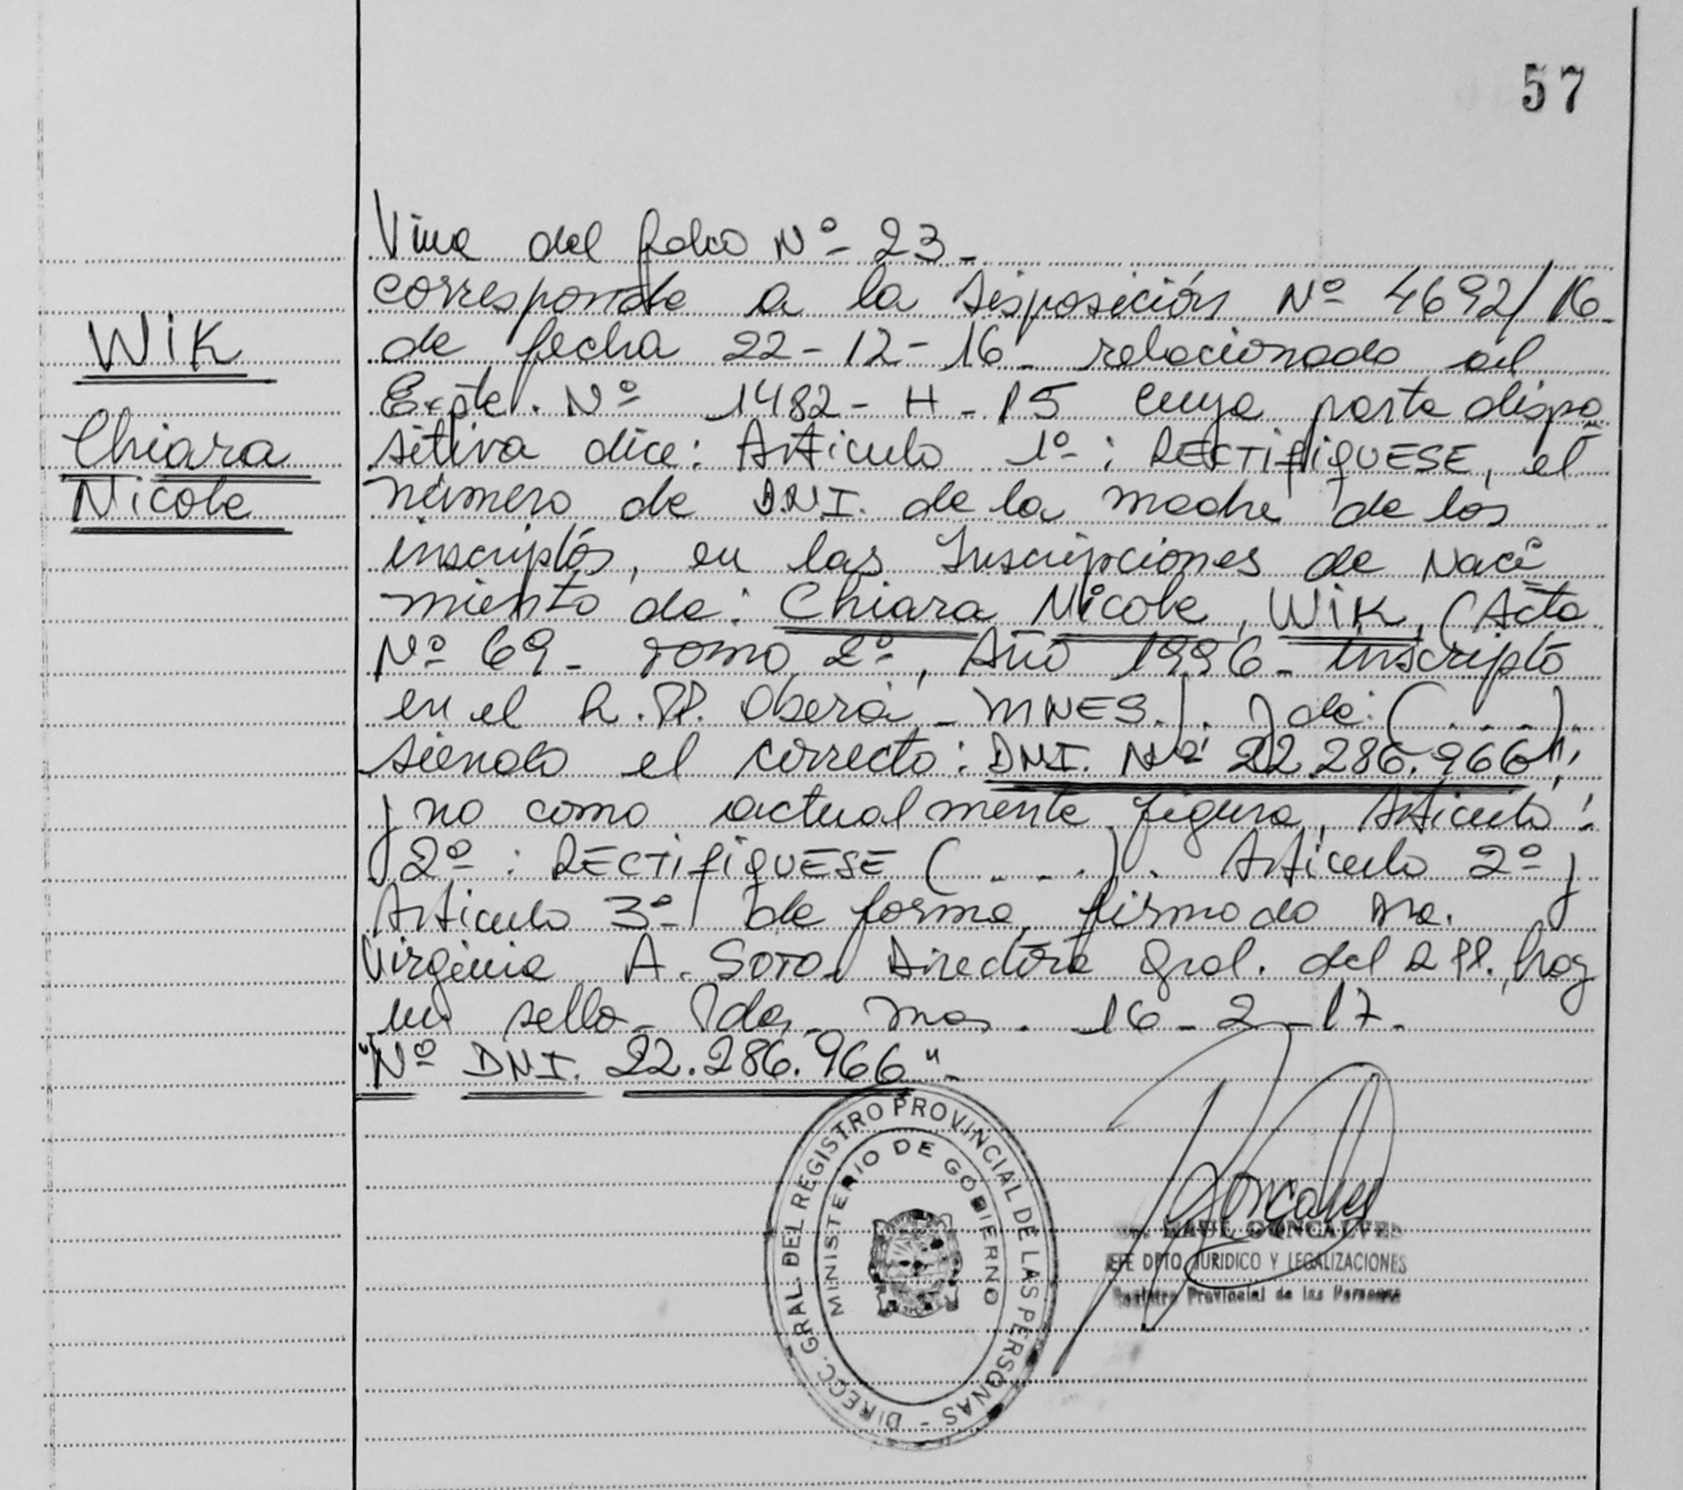 57
Viene del folio Nº 23 -
corresponde a la disposición Nº 4692/16
de fecha 22-12-16 relacionado al
Expte. Nº 1482-H-15 cuya parte dispo
sitiva dice: Artículo 1º: RECTIFIQUESE, el
número de D.N.I. de la madre de los
inscriptos, en las Inscripciones de Naci
miento de: Chiara Nicole, WiK, (Acta
Nº 69 - Tomo 2º, Año 1996 - inscripto
en el R.PP. Oberá - MNES.). y de: (....).
siendo el correcto: DNI. Nº: 22.286.966";
y no como actualmente figura, Artículo:
2º: RECTIFIQUESE (....). Artículo 2º y
Artículo 3º de forma, firmado Dra.
Virginia A. Soto Directora Gral. del R.PP. hay
un sello - Pdas. Mnes. 16-2-17.
"Nº DNI. 22.286.966"-
WiK
Chiara
Nicole
DIRECC. GRAL. DEL REGISTRO PROVINCIAL DE LAS PERSONAS -
MINISTERIO DE GOBIERNO
RAUL GONCALVES
JEFE DPTO JURIDICO Y LEGALIZACIONES
Registro Provincial de las Personas